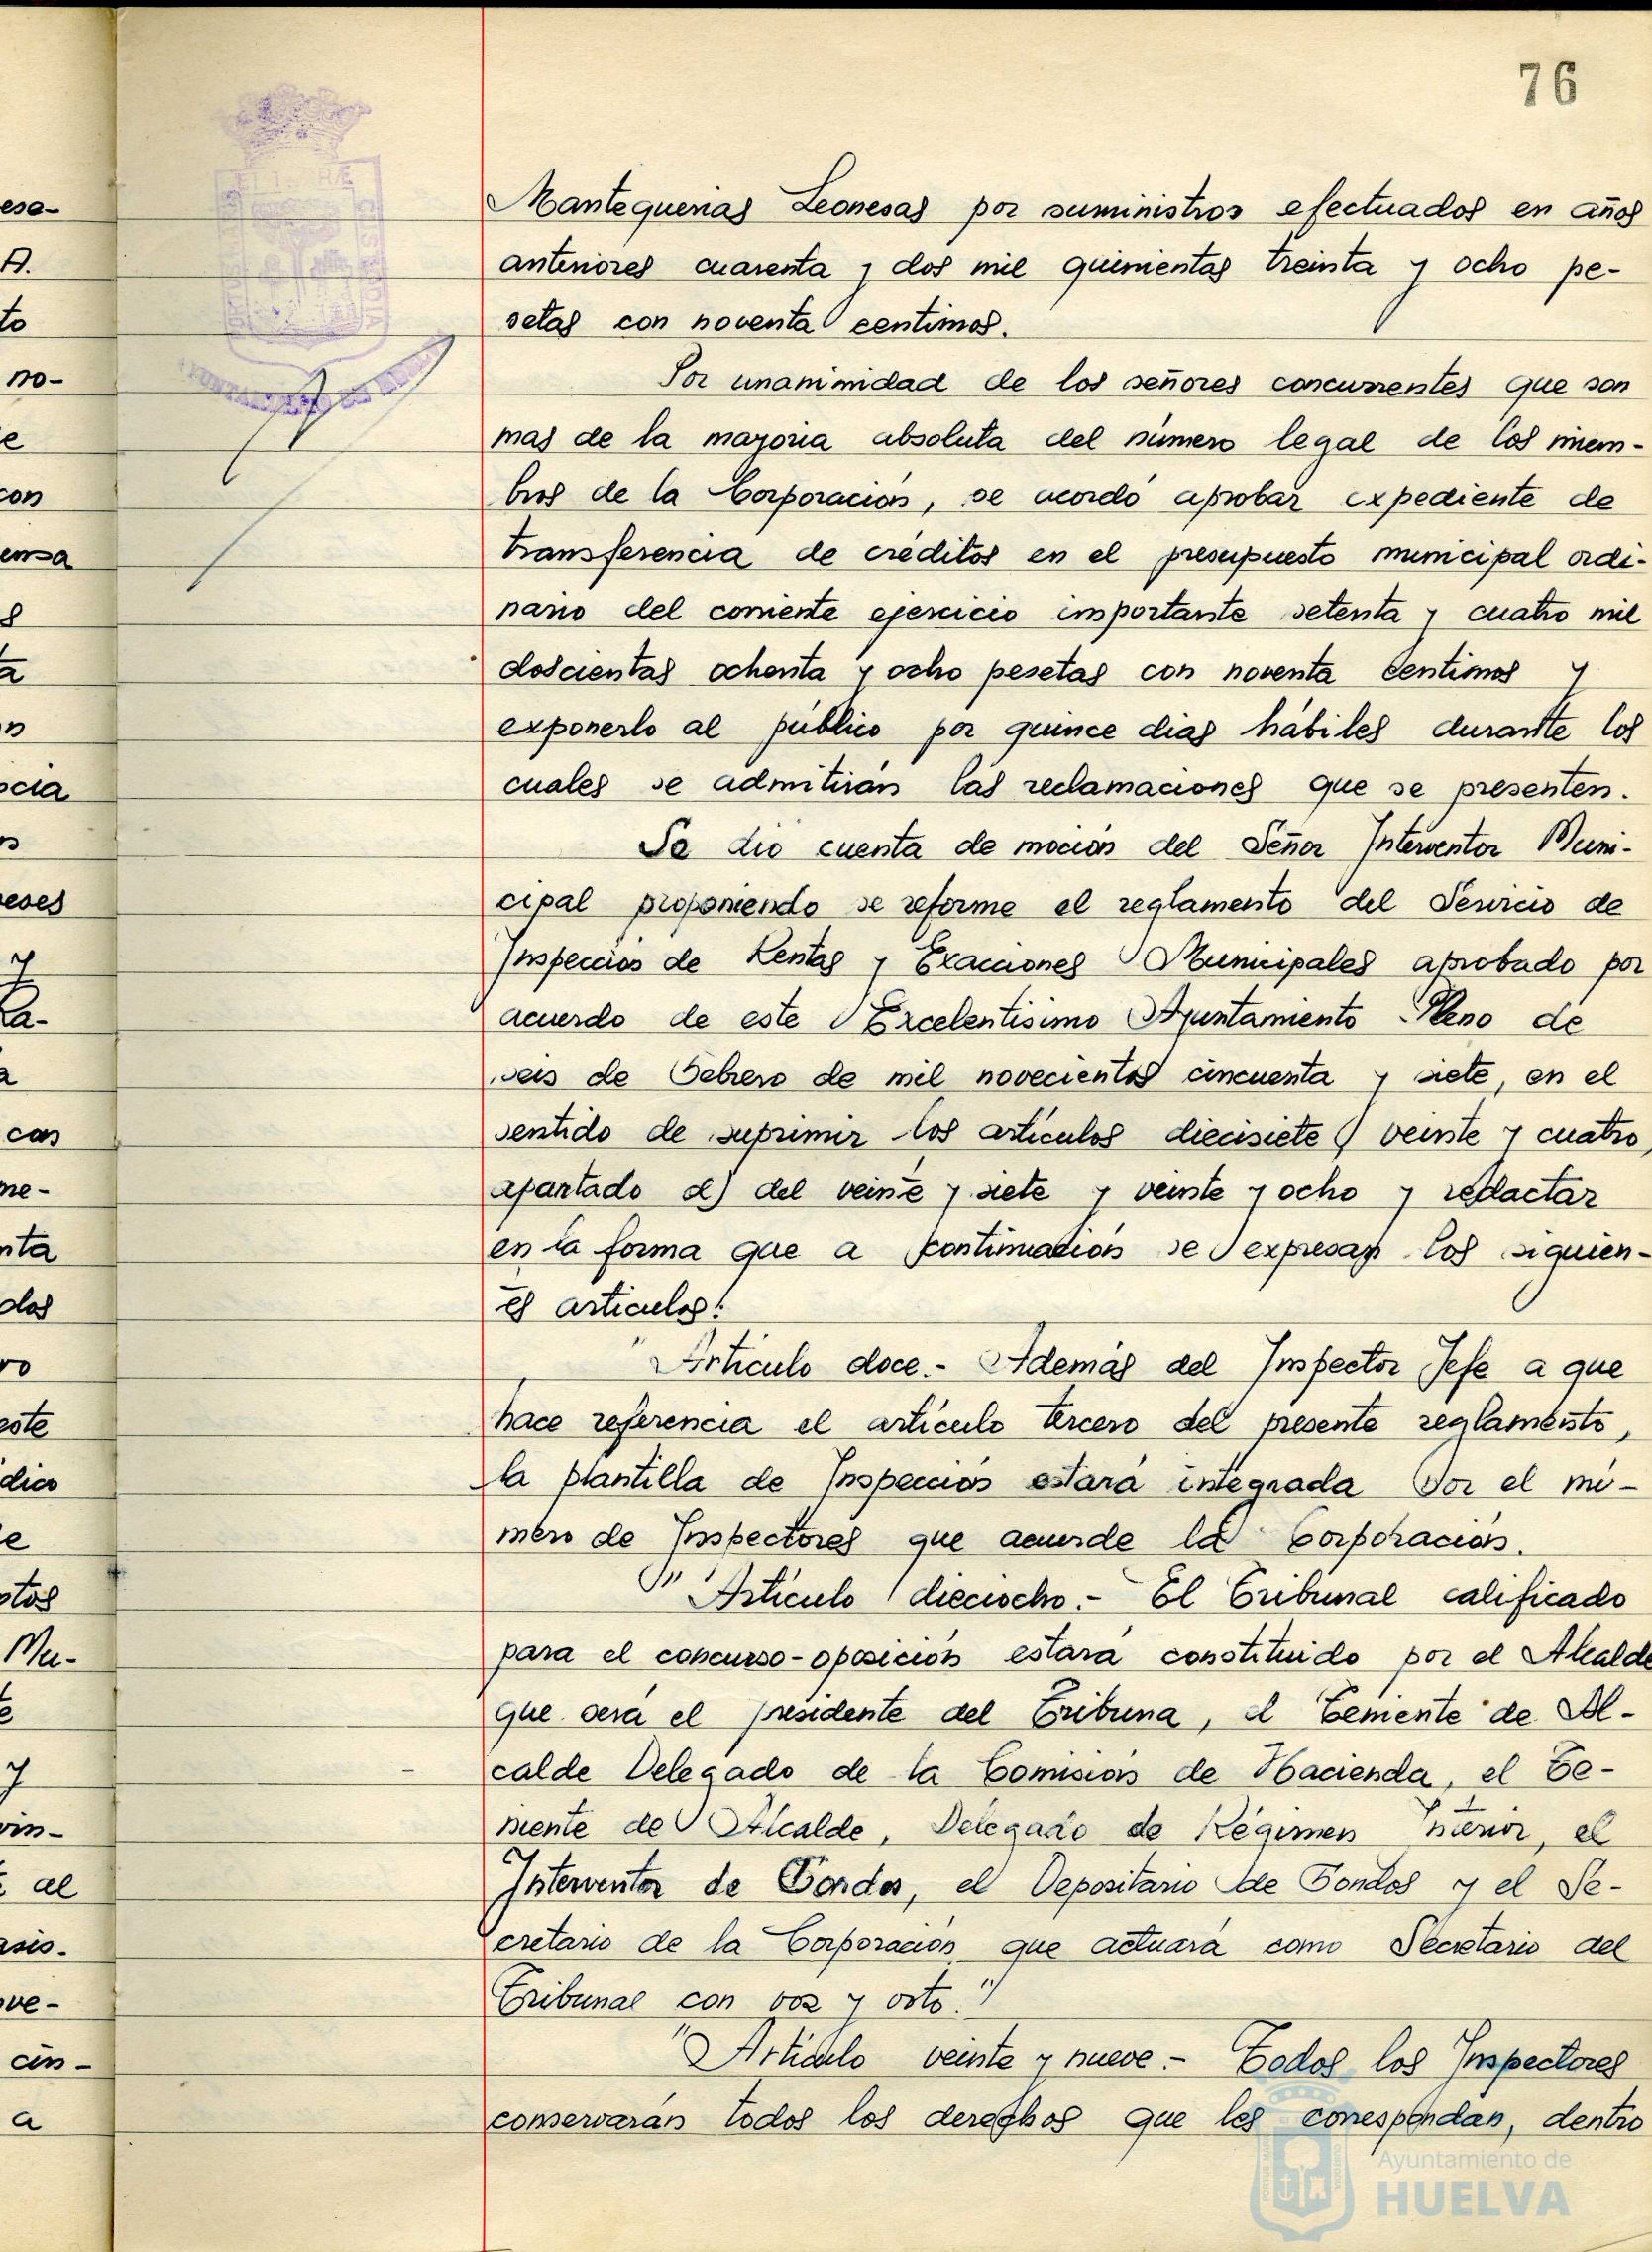 76
Mantequerias Leonesas por suministros efectuados en años
anteriores cuarenta y dos mil quinientas treinta y ocho pe-
setas con noventa centimos.
Por unanimidad de los señores concurrentes que son
mas de la mayoria absoluta del número legal de los miem-
bros de la Corporación, se acordó aprobar expediente de
transferencia de créditos en el presupuesto municipal ordi-
nario del corriente ejercicio importante setenta y cuatro mil
doscientas ochenta y ocho pesetas con noventa centimos y
exponerlo al público por quince dias hábiles durante los
cuales se admitirán las reclamaciones que se presenten.
Se dio cuenta de moción del Señor Interventor Muni-
cipal proponiendo se reforme el reglamento del Servicio de
Inspección de Rentas y Exacciones Municipales aprobado por
acuerdo de este Excelentísimo Ayuntamiento Pleno de
seis de Febrero de mil novecientos cincuenta y siete, en el
sentido de suprimir los artículos diecisiete y veinte y cuatro,
apartado d) del veinte y siete y veinte y ocho y redactar
en la forma que a continuación se expresan los siguien-
es articulos:
"Artículo doce.- Además del Inspector Jefe a que
hace referencia el artículo tercero del presente reglamento,
la plantilla de Inspección estará integrada por el nú-
mero de Inspectores que acuerde la Corporación.
"Artículo dieciocho.- El Tribunal calificado
para el concurso-oposición estará constituido por el Alcalde
que será el presidente del Tribuna, el Teniente de Al-
calde Delegado de la Comisión de Hacienda, el Te-
niente de Alcalde, Delegado de Régimen Interior, el
Interventor de Fondos, el Depositario de Fondos y el Se-
cretario de la Corporación que actuará como Secretario del
Tribunal con voz y voto."
"Artículo veinte y nueve.- Todos los Inspectores
conservarán todos los derechos que les correspondan, dentro
ese-
A.
to
no-
e
con
ensa
s
ta
n
ocia
eses
y
a
cas
me-
nta
dos
ro
este
dico
e
Mu-
y
vin-
al
asis-
ve-
cin-
a
Ayuntamiento de
HUELVA